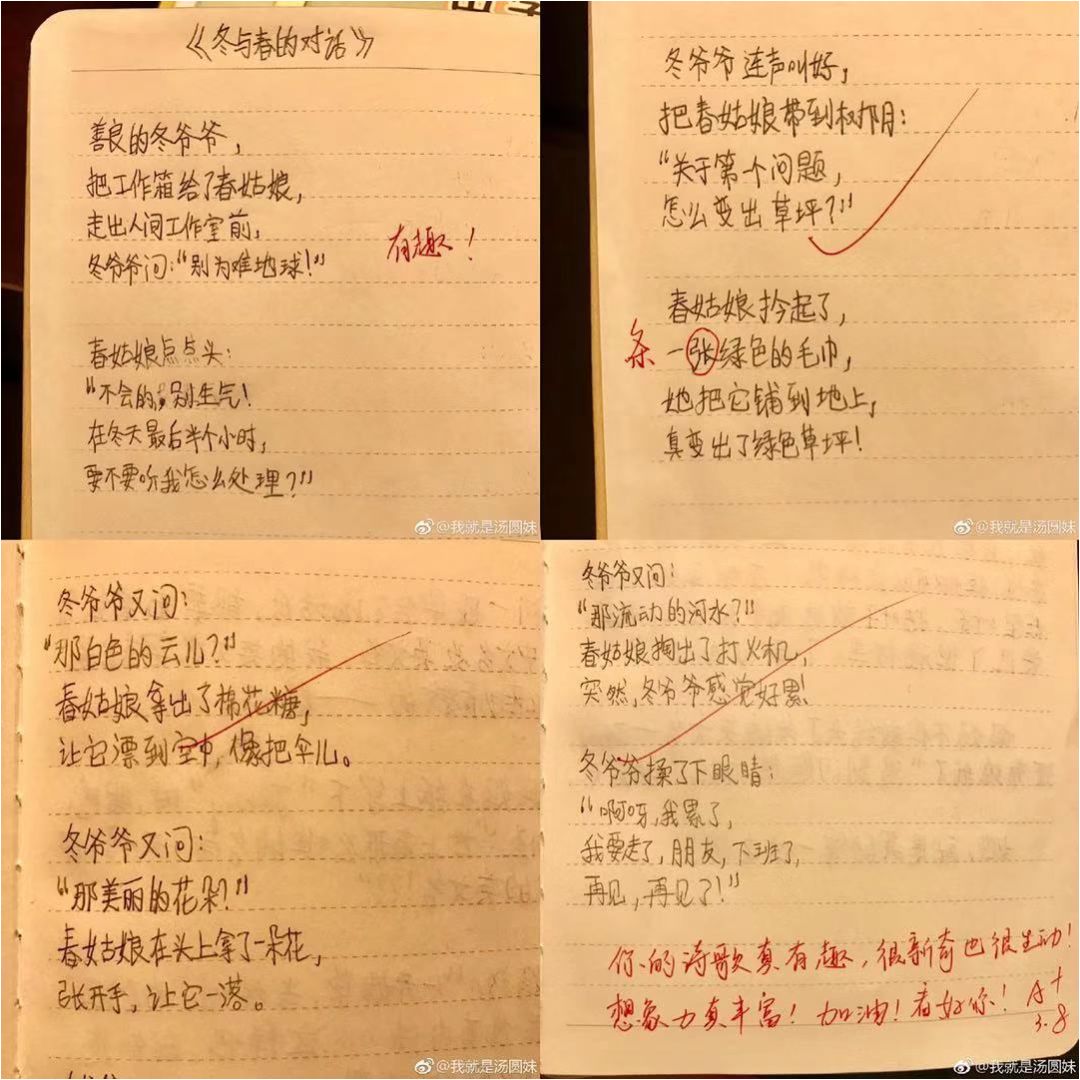 《冬与春的对话》
善良的冬爷爷,
把工作箱给了春姑娘,
走出人间工作室前,
冬爷爷问:“别为难地球!”
有趣!
春姑娘点点头:
“不会的,别生气!
在冬天最后半个小时,
要不要听我怎么处理?”
@我就是汤圆妹
冬爷爷连声叫好,
把春姑娘带到树阴:
“关于第个问题,
怎么变出草坪?”
春姑娘拎起了,
条
一张绿色的毛巾,
她把它铺到地上,
真变出了绿色草坪!
@我就是汤圆妹
冬爷爷又问:
“那白色的云儿?”
春姑娘拿出了棉花糖,
让它漂到空中,像把伞儿。
冬爷爷又问:
“那美丽的花朵?”
春姑娘在头上拿了一朵花,
张开手,让它一落。
@我就是汤圆妹
冬爷爷又问:
“那流动的河水?”
春姑娘掏出了打火机,
突然,冬爷爷感觉好累!
冬爷爷揉了下眼睛:
“啊呀,我累了,
我要走了,朋友,下班了,
再见,再见了!”
你的诗歌真有趣,很新奇也很生动!
想象力真丰富!加油!看好你!A+
3.8
@我就是汤圆妹